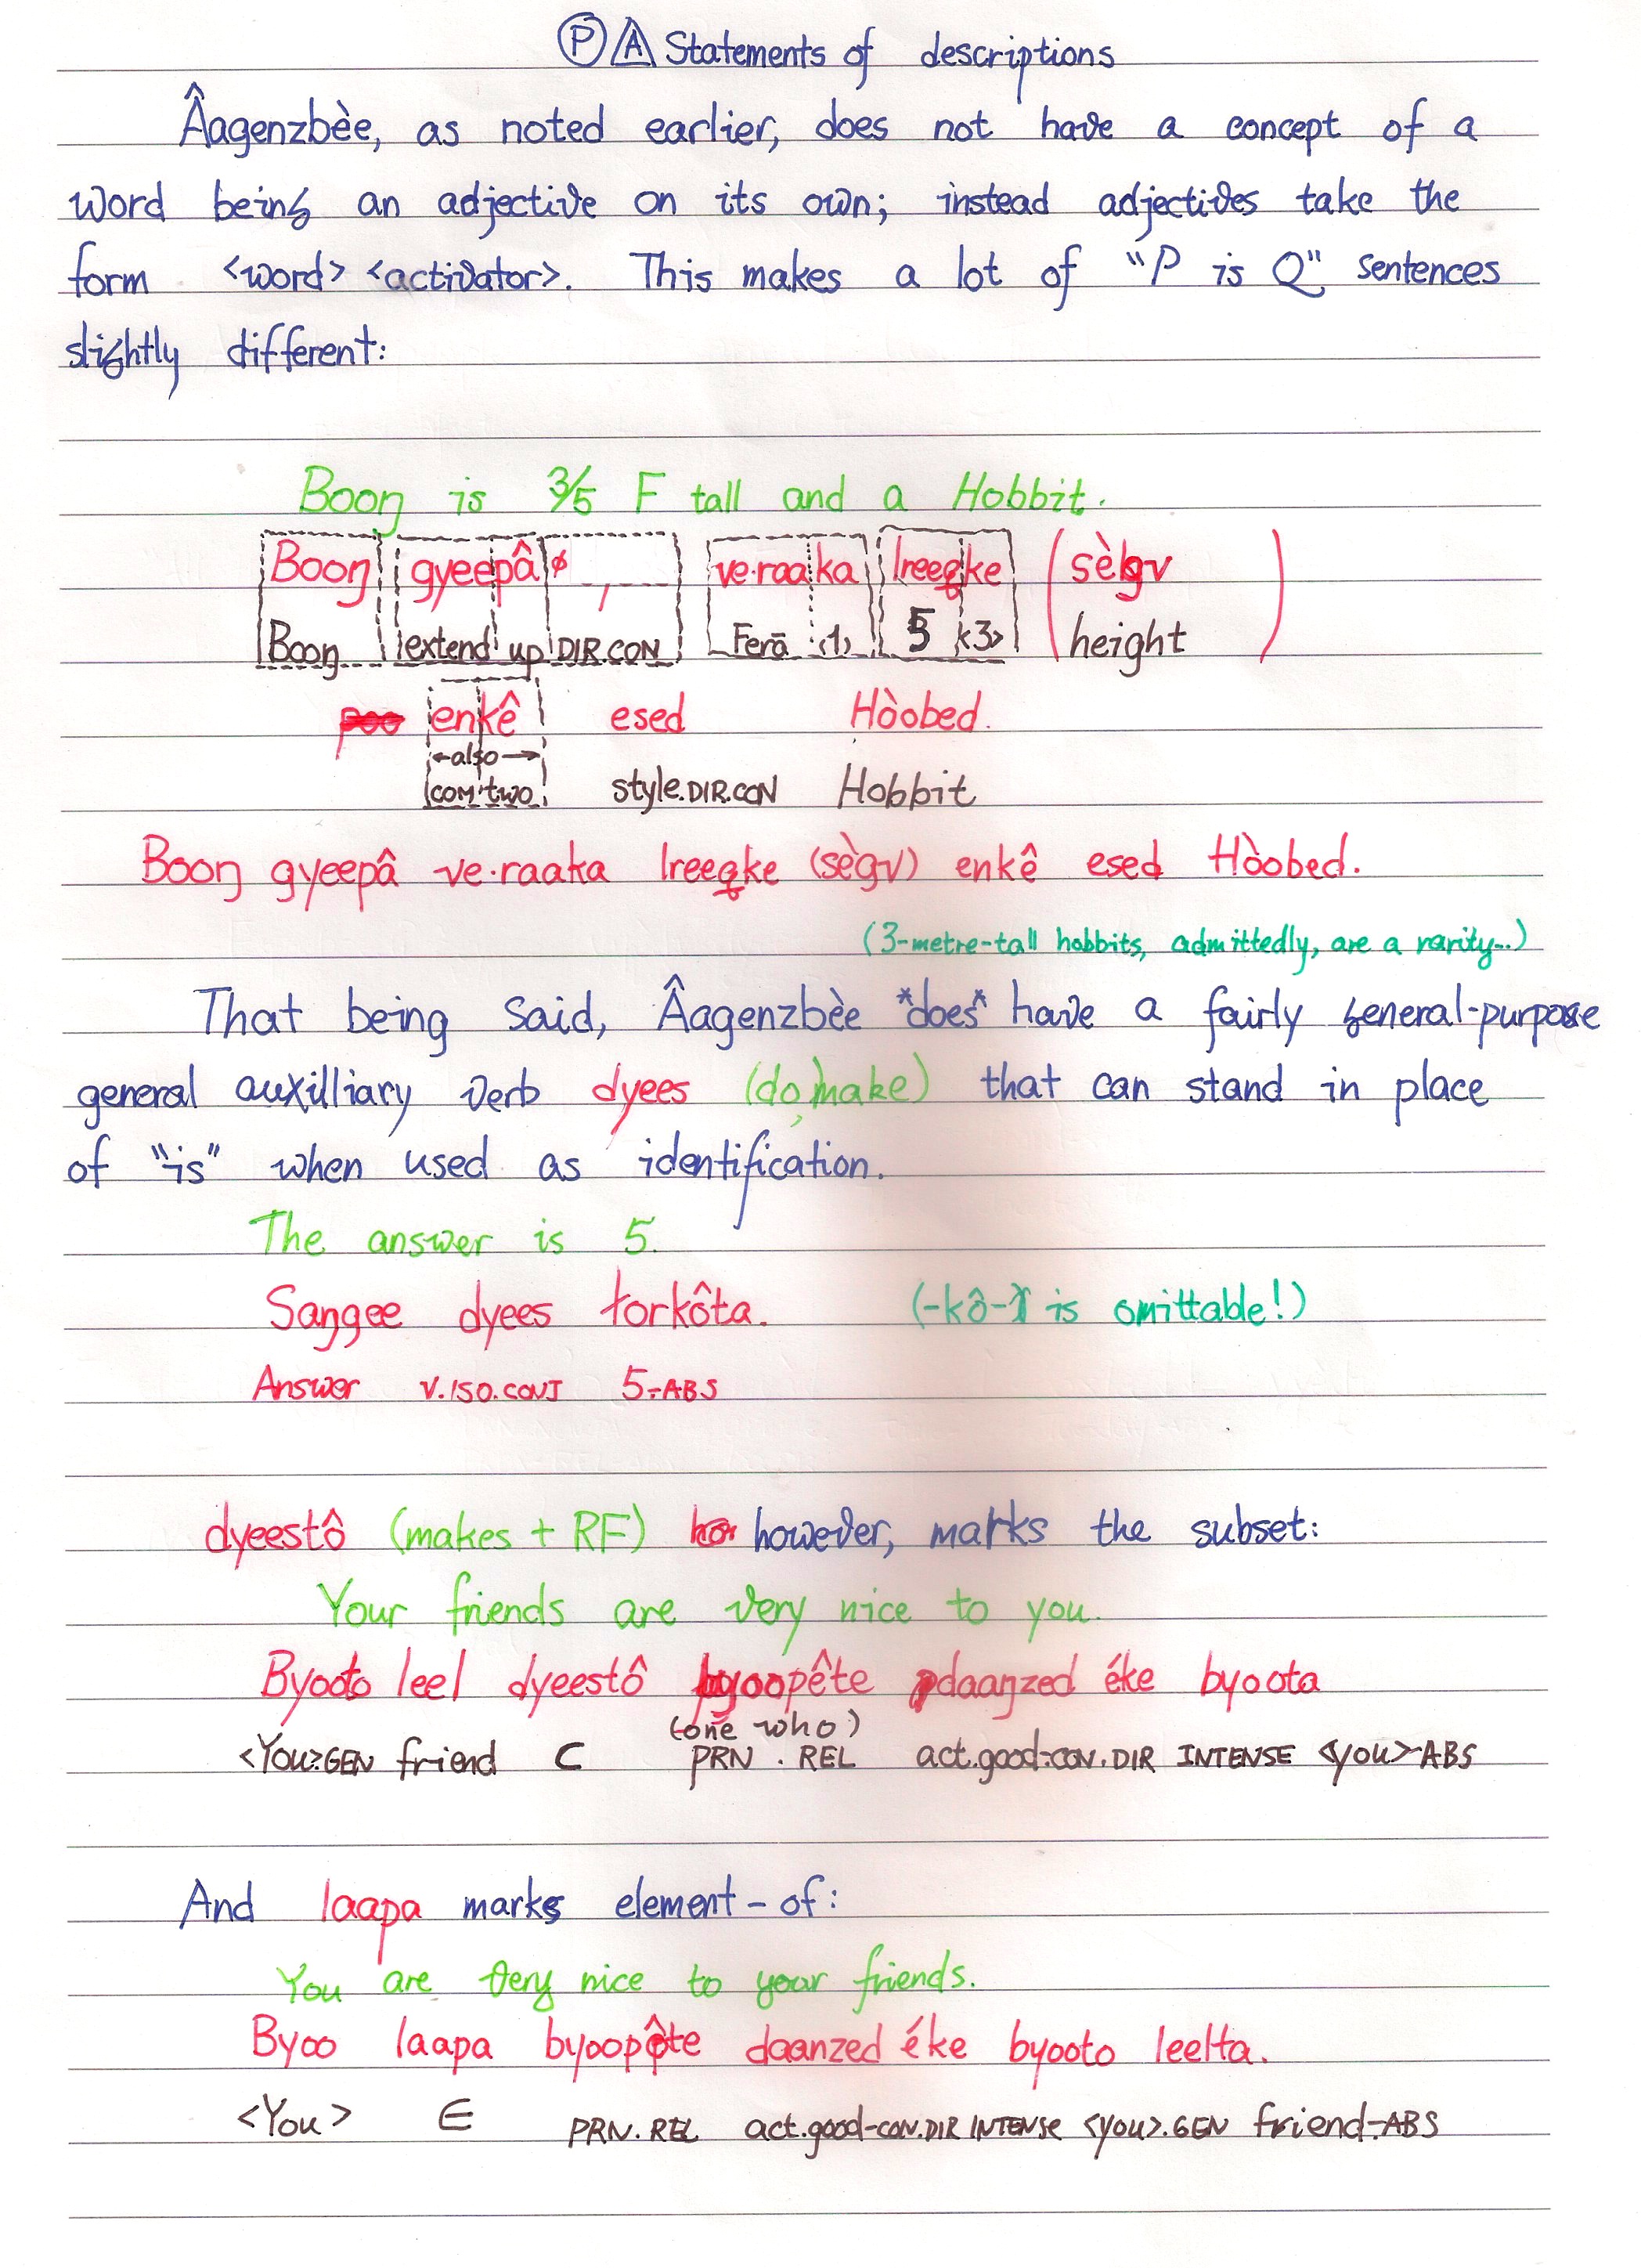 P A Statements of descriptions
Âagenzbèe, as noted earlier, does not have a concept of a
word being an adjective on its own; instead adjectives take the
form <word> <activator>. This makes a lot of "P is Q" sentences
slightly different:
Booŋ is 3/5 F tall and a Hobbit.
Booŋ gyeepâ ∅ , ve·raaka lreeqke (sègv)
Booŋ extend up DIR.CON Ferā <1> 5 <3> height
enkê esed Hòobed.
←also→
com two style.DIR.CON Hobbit
Booŋ gyeepâ ve·raaka lreeqke (sègv) enkê esed Hòobed.
(3-metre-tall hobbits, admittedly, are a rarity...)
That being said, Âagenzbèe *does* have a fairly general-purpose
general auxilliary verb dyees (do, make) that can stand in place
of "is" when used as identification.
The answer is 5.
Saŋgee dyees torkôta. (-kô- is omittable!)
Answer V.ISO.CONJ 5-ABS
dyeestô (makes + RF) however, marks the subset:
Your friends are very nice to you.
Byooto leel dyeestô byoopête daaŋzed éke byoota
(one who)
<You>.GEN friend ⊂ PRN.REL act.good-CON.DIR INTENSE <you>-ABS
And laapa marks element-of:
You are very nice to your friends.
Byoo laapa byoopête daanzed éke byooto leelta.
<You> ∈ PRN.REL act.good-CON.DIR INTENSE <you>.GEN friend-ABS